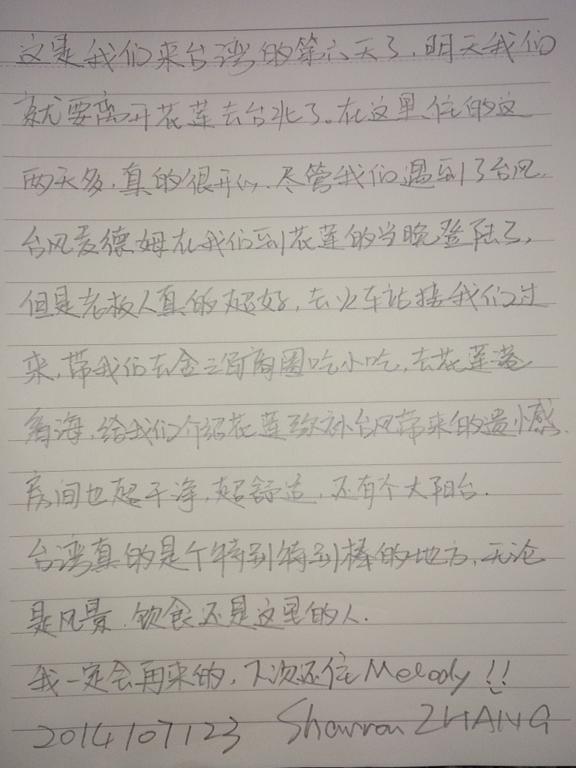 这是我们来台湾的第六天了，明天我们
就要离开花莲去台北了。在这里住的这
两天多，真的很开心，尽管我们遇到了台风.
台风麦德姆在我们到花莲的当晚登陆了，
但是老板人真的超好，去火车站接我们过
来，带我们去金三角商圈吃小吃，去花莲港
看海，给我们介绍花莲弥补台风带来的遗憾感.
房间也超干净，超舒适，还有个大阳台.
台湾真的是个特别特别棒的地方，无论
是风景、饮食还是这里的人.
我一定会再来的，下次还住Melody!!
2014/07/23 Sharron ZHANG